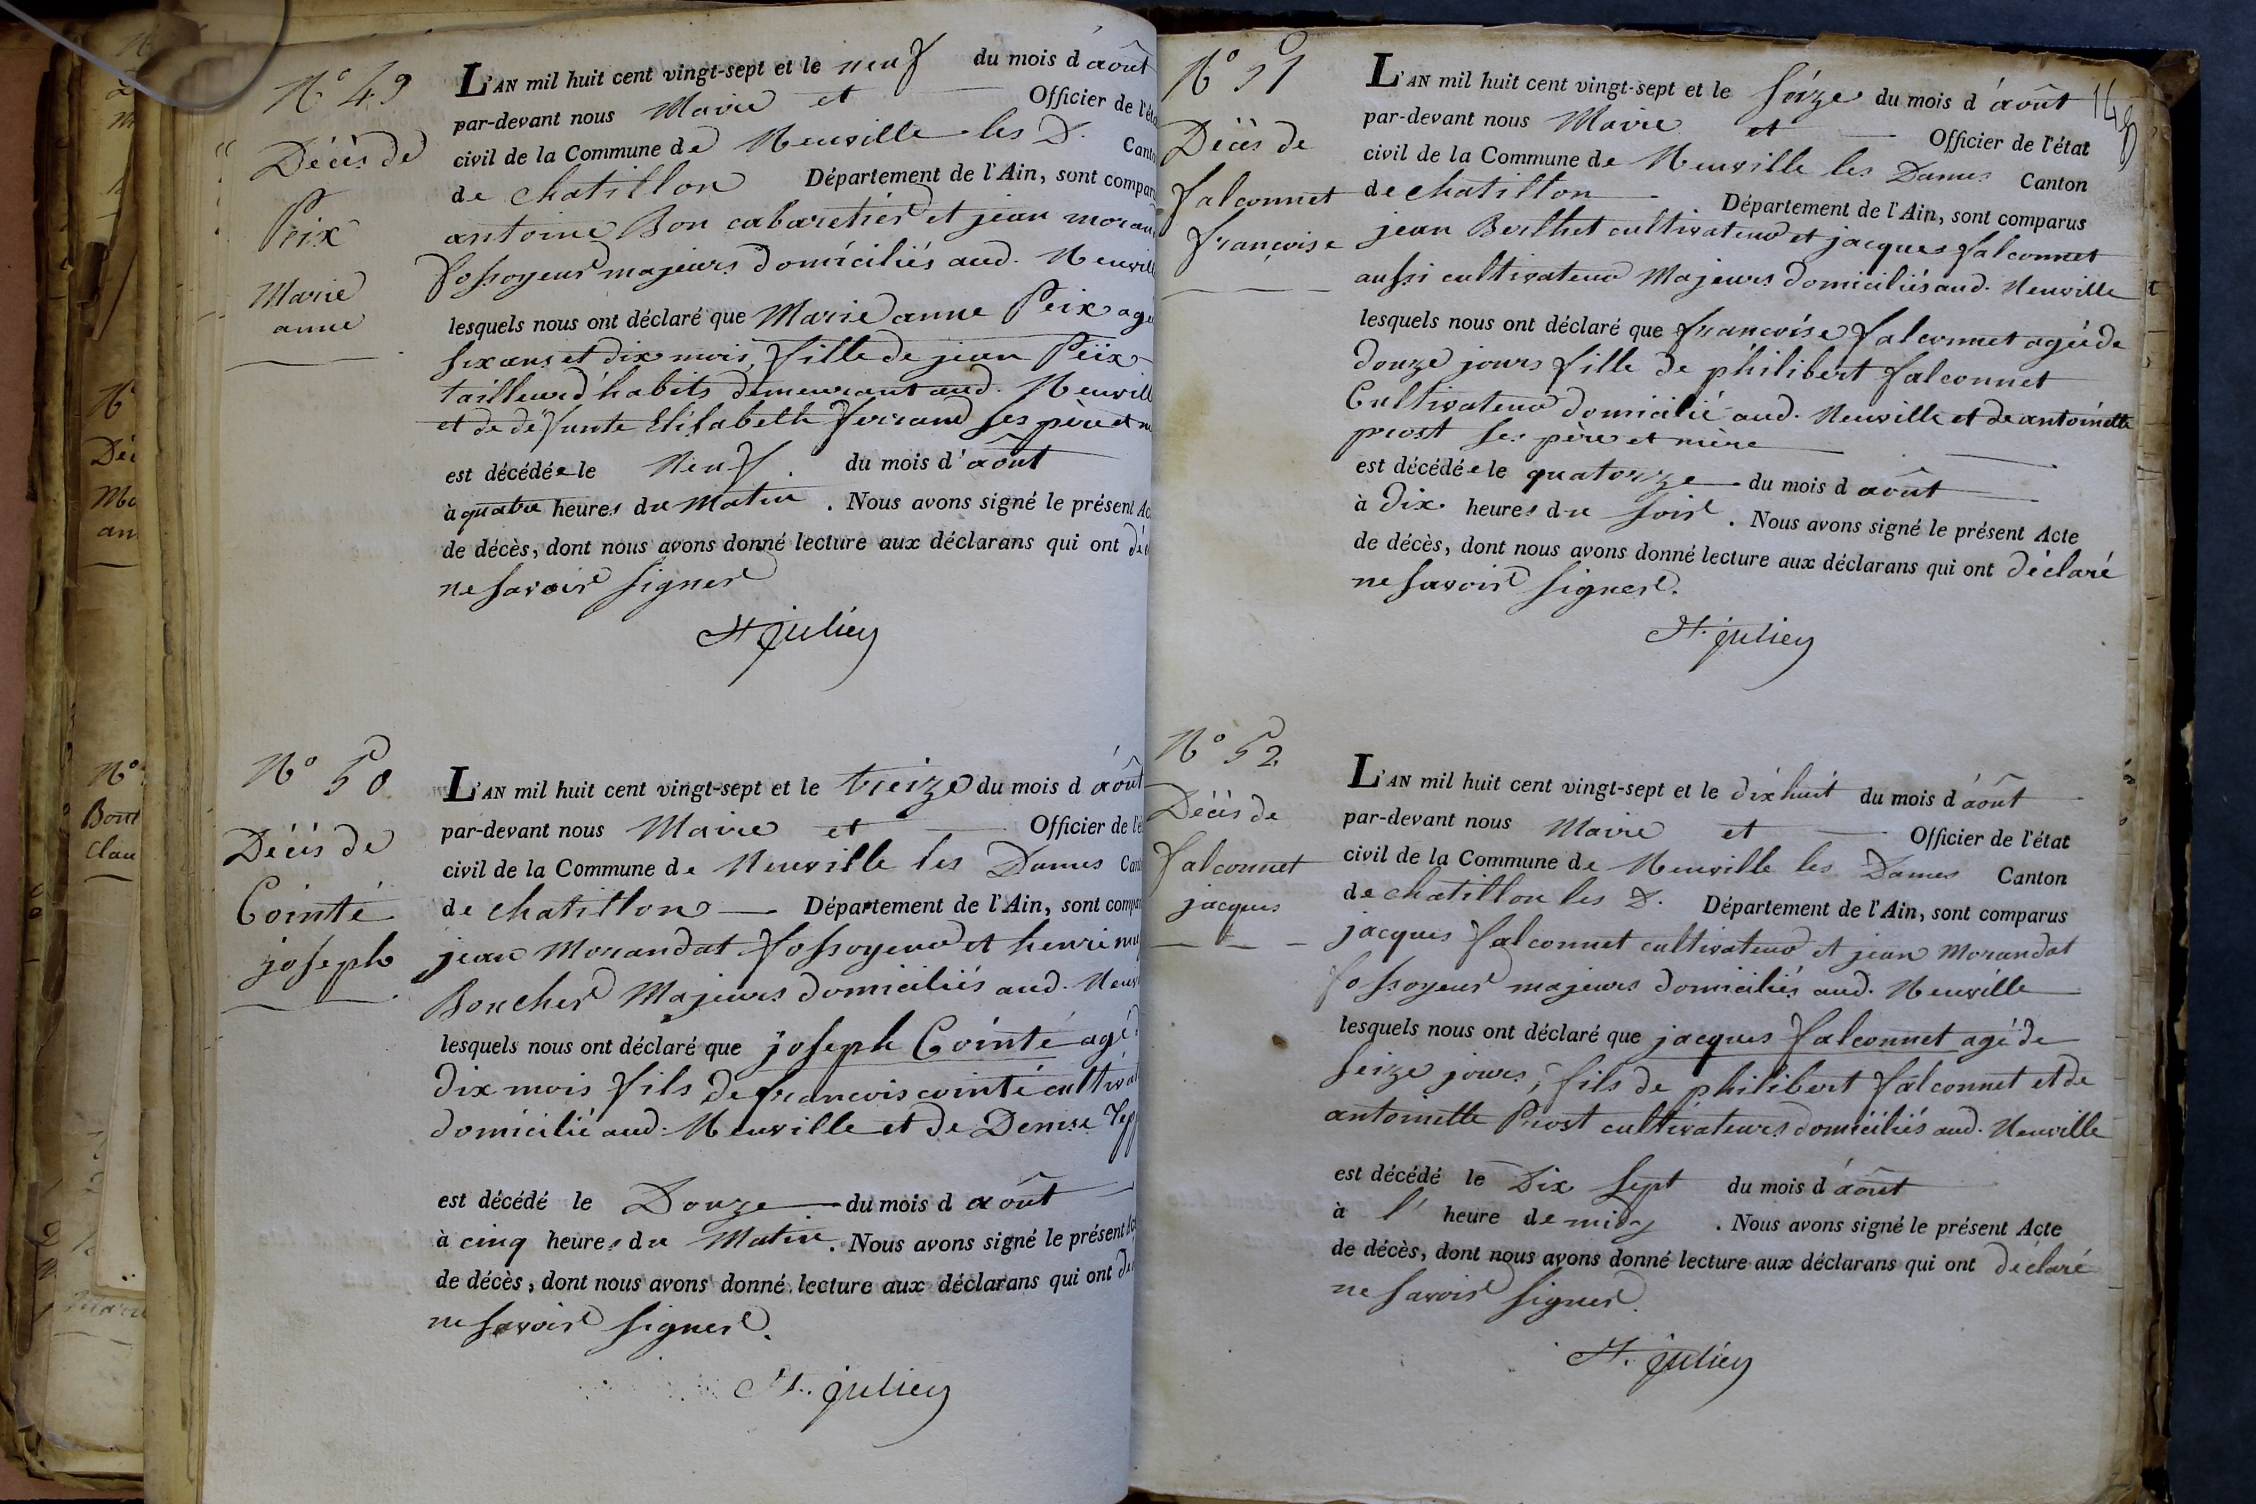 N° 49
Décès de
Peix
Marie
anne
L'AN mil huit cent vingt-sept et le neuf du mois d'août
par-devant nous Maire et Officier de l'éta
civil de la Commune de Neuville les D. Canto
de chatillon Département de l'Ain, sont compar
antoine Bon cabaretier et jean moran
fossoyeur majeurs domiciliés aud. Neuvill
lesquels nous ont déclaré que Marie anne Peix agé
six ans et dix mois, fille de jean Peix
tailleur d'habits demeurant aud. Neuvill
et de défunte Elisabeth ferrand ses père et m
est décédée le Neuf. du mois d'août
à quatre heures du Matin. Nous avons signé le présent Ac
de décès, dont nous avons donné lecture aux déclarans qui ont déc
ne savoir signer
St. julien
N° 50
Décès de
Cointé
joseph
L'AN mil huit cent vingt-sept et le treize du mois d'août
par-devant nous Maire et Officier de l'é
civil de la Commune de Neuville les Dames Can
de chatillon Département de l'Ain, sont compa
jean Morandat fossoyeur et henri
Boucher Majeurs domiciliés aud. Neuv
lesquels nous ont déclaré que joseph Cointé agé d
dix mois fils de francois cointé cultiva
domicilié aud. Neuville et de Denise
est décédé le Douze du mois d'août
à cinq heures du Matin. Nous avons signé le présent Ac
de décès, dont nous avons donné lecture aux déclarans qui ont dé
ne savoir signer.
St. julien
148
N° 51
Décès de
falconnet
françoise
L'AN mil huit cent vingt-sept et le seize du mois d'août
par-devant nous Maire et Officier de l'état
civil de la Commune de Neuville les Dames Canton
de chatillon Département de l'Ain, sont comparus
jean Berthet cultivateur et jacques falconnet
aussi cultivateur Majeurs domiciliés aud. Neuville
lesquels nous ont déclaré que françoise falconnet agée de
douze jours fille de philibert falconnet
Cultivateur domicilié aud. Neuville et de antoinette
prost ses père et mère
est décédée le quatorze du mois d août
à dix heures du soir. Nous avons signé le présent Acte
de décès, dont nous avons donné lecture aux déclarans qui ont déclaré
ne savoir signer.
St. julien
N° 52
Décès de
falconnet
jacques
L'AN mil huit cent vingt-sept et le dix huit du mois d'août
par-devant nous Maire et Officier de l'état
civil de la Commune de Neuville les Dames Canton
de chatillon les D. Département de l'Ain, sont comparus
jacques falconnet cultivateur et jean Morandat
fossoyeur majeurs domiciliés aud. Neuville
lesquels nous ont déclaré que jacques falconnet agé de
seize jours, fils de philibert falconnet et de
antoinette Prost cultivateurs domiciliés aud. Neuville
est décédé le Dix sept du mois d'août
à l' heure de midy. Nous avons signé le présent Acte
de décès, dont nous avons donné lecture aux déclarans qui ont déclaré
ne savoir signer.
St. julien